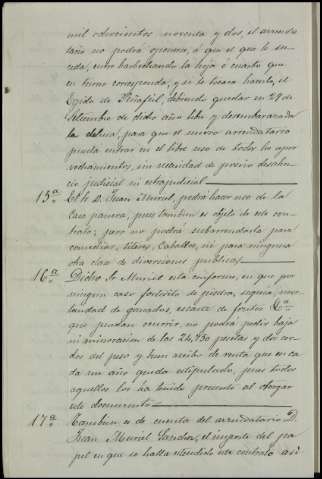 mil ochocientos noventa y dos, el arrenda
tario no podrá oponerse, á que el que le su
ceda, entre barbechando la hoja ó cuarto que
en turno corresponda; y si le tocara hacerlo, el
Egido de Peñafiel, debiendo quedar en 29 de
Setiembre de dicho año libre y desembarazada
la dehesa, para que el nuevo arrendatario
pueda entrar en el libre uso de todos los apro
vechamientos, sin necesidad de previo desahu
cio judicial ni extrajudicial
15ª El Sr. D. Juan Muriel, podrá hacer uso de la
Casa panera, pues tambien es objeto de este con
trato; pero no podrá subarrendarla para
comedias, titeres, caballos, ni para ninguna
otra clase de diversiones públicas
16ª Dicho Sr. Muriel está conforme, en que por
ningun caso fortuito de piedra, sequia, mor
tandad de ganados, escasez de frutos &ª
que puedan ocurrir, no podrá pedir baja
ni aminoracion de las 24,750 pesetas y dos cer
dos del peso y buen recibo de renta que en ca
da un año queda estipulado, pues todos
aquellos los ha tenido presente al otorgar
este documento
17ª Tambien es de cuenta del arrendatario D.
Juan Muriel Sandra, el importe del pa
pel en que se halla estendido este contrato asi